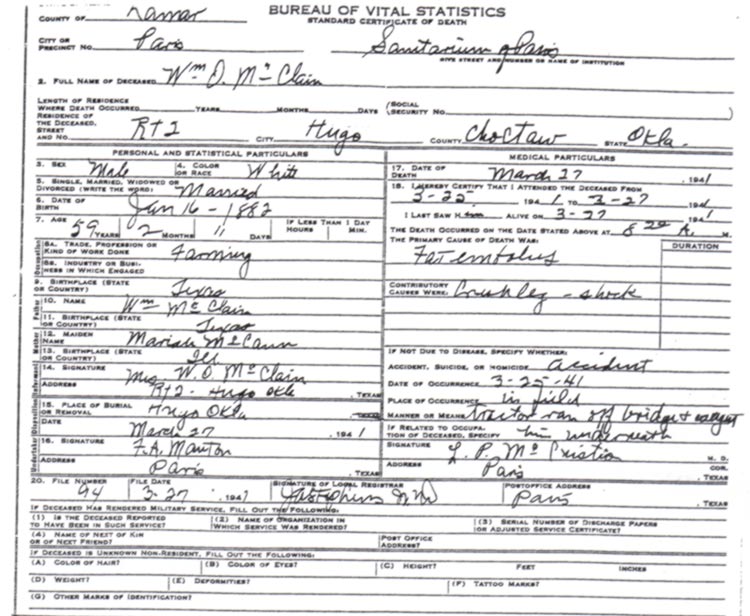 BUREAU OF VITAL STATISTICS
STANDARD CERTIFICATE OF DEATH
COUNTY OF Lamar
CITY OR PRECINCT NO. Paris Sanitarium of Paris
GIVE STREET AND NUMBER OR NAME OF INSTITUTION
2. FULL NAME OF DECEASED Wm O. McClain
LENGTH OF RESIDENCE WHERE DEATH OCCURRED YEARS MONTHS DAYS (SOCIAL SECURITY NO. )
RESIDENCE OF THE DECEASED, STREET AND NO. Rt 2 CITY Hugo COUNTY Choctaw STATE Okla.
PERSONAL AND STATISTICAL PARTICULARS
3. SEX Male 4. COLOR OR RACE White
5. SINGLE, MARRIED, WIDOWED OR DIVORCED (WRITE THE WORD) Married
6. DATE OF BIRTH Jan 16 - 1882
7. AGE 59 YEARS 2 MONTHS 11 DAYS IF LESS THAN 1 DAY HOURS MIN.
Occupation
8A. TRADE, PROFESSION OR KIND OF WORK DONE Farming
8B. INDUSTRY OR BUSINESS IN WHICH ENGAGED
9. BIRTHPLACE (STATE OR COUNTRY) Texas
Father
10. NAME Wm McClain
11. BIRTHPLACE (STATE OR COUNTRY) Texas
Mother
12. MAIDEN NAME Mariah McCann
13. BIRTHPLACE (STATE OR COUNTRY) Ill
Informant
14. SIGNATURE Mrs W. O. McClain
ADDRESS Rt 2 - Hugo Okla , TEXAS
Disposition
15. PLACE OF BURIAL OR REMOVAL Hugo Okla TEXAS
DATE March 27 , 1941
Undertaker
16. SIGNATURE F. A. Manton
ADDRESS Paris , TEXAS
MEDICAL PARTICULARS
17. DATE OF DEATH March 27 , 1941
18. I HEREBY CERTIFY THAT I ATTENDED THE DECEASED FROM
3-25- 1941 TO 3-27 1941
I LAST SAW HIM ALIVE ON 3-27 1941
THE DEATH OCCURRED ON THE DATE STATED ABOVE AT 8 20 A. M.
THE PRIMARY CAUSE OF DEATH WAS: DURATION
Fat embolus
CONTRIBUTORY CAUSES WERE: leg - shock
IF NOT DUE TO DISEASE, SPECIFY WHETHER:
ACCIDENT, SUICIDE, OR HOMICIDE accident
DATE OF OCCURRENCE 3-25-41
PLACE OF OCCURRENCE in field
MANNER OR MEANS tractor ran off bridge & caught
IF RELATED TO OCCUPATION OF DECEASED, SPECIFY him underneath
SIGNATURE L. P. McCuistion M. D. COR.
ADDRESS Paris TEXAS
20. FILE NUMBER 94 FILE DATE 3-27 , 1941 SIGNATURE OF LOCAL REGISTRAR POSTOFFICE ADDRESS Paris , TEXAS
IF DECEASED HAS RENDERED MILITARY SERVICE, FILL OUT THE FOLLOWING:
(1) IS THE DECEASED REPORTED TO HAVE BEEN IN SUCH SERVICE? (2) NAME OF ORGANIZATION IN WHICH SERVICE WAS RENDERED? (3) SERIAL NUMBER OF DISCHARGE PAPERS OR ADJUSTED SERVICE CERTIFICATE?
(4) NAME OF NEXT OF KIN OR OF NEXT FRIEND? POST OFFICE ADDRESS?
IF DECEASED IS UNKNOWN NON-RESIDENT, FILL OUT THE FOLLOWING:
(A) COLOR OF HAIR? (B) COLOR OF EYES? (C) HEIGHT? FEET INCHES
(D) WEIGHT? (E) DEFORMITIES? (F) TATTOO MARKS?
(G) OTHER MARKS OF IDENTIFICATION?